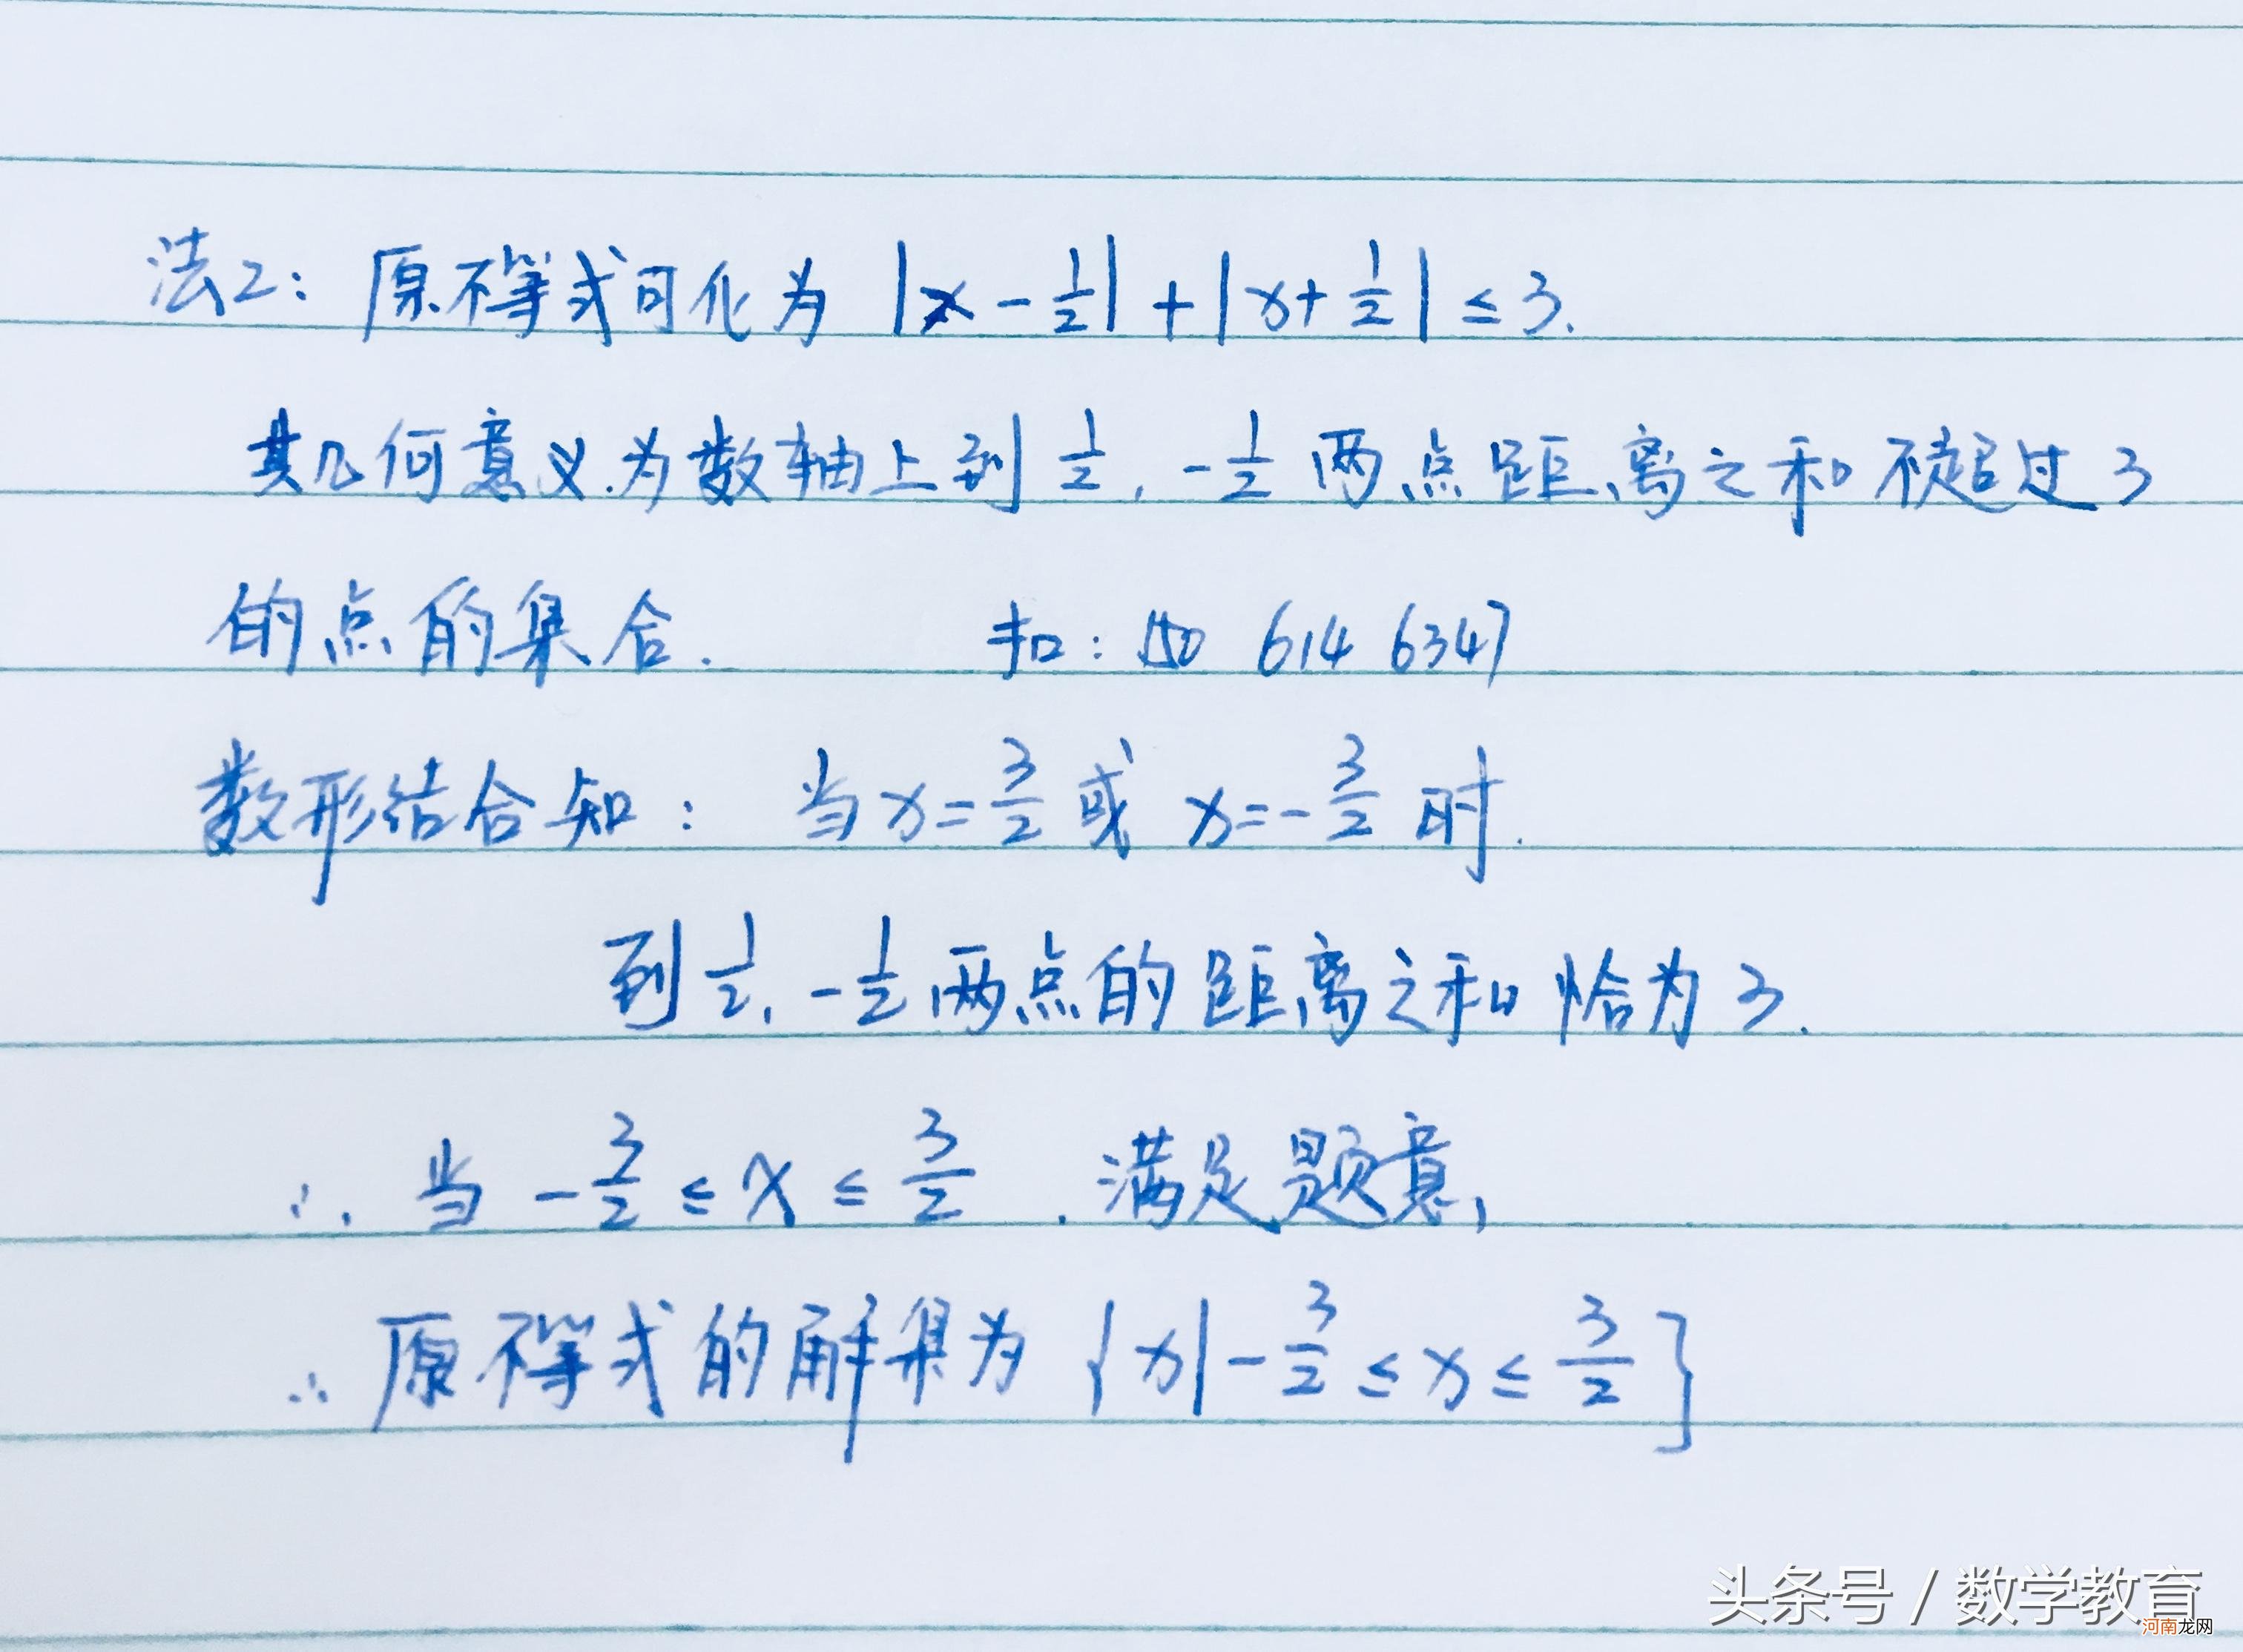 法2: 原不等式可化为 |x - 1/2| + |x + 1/2| ≤ 3.
其几何意义为数轴上到 1/2, -1/2 两点距离之和不超过3
的点的集合. 扣: 150 614 6347
数形结合知: 当 x = 3/2 或 x = -3/2 时.
到 1/2, -1/2 两点的距离之和恰为3.
∴ 当 -3/2 ≤ x ≤ 3/2 . 满足题意,
∴ 原不等式的解集为 {x| -3/2 ≤ x ≤ 3/2}
头条号 / 数学教育
河南龙网